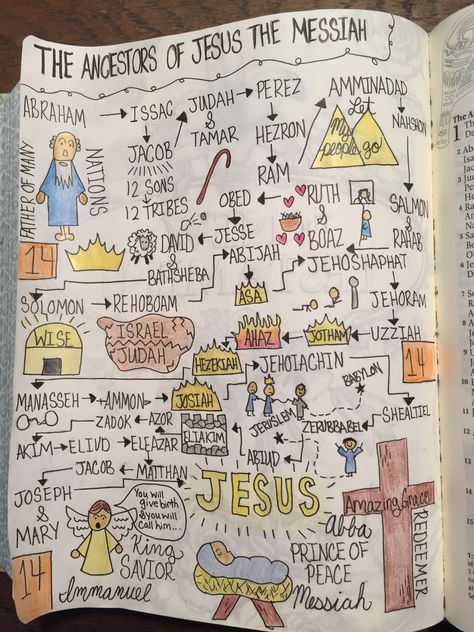 THE ANCESTORS OF JESUS THE MESSIAH
ABRAHAM
ISSAC
JUDAH
&
TAMAR
PEREZ
HEZRON
RAM
AMMINADAD
NAHSHON
Let
My
people go
JACOB
12 SONS
12 TRIBES
FATHER OF MANY
NATIONS
SALMON
&
RAHAB
RUTH
&
BOAZ
OBED
JESSE
DAVID
&
BATHSHEBA
14
SOLOMON
REHOBOAM
ABIJAH
ASA
JEHOSHAPHAT
JEHORAM
UZZIAH
JOTHAM
AHAZ
HEZEKIAH
WISE
ISRAEL
JUDAH
MANASSEH
AMMON
JOSIAH
JEHOIACHIN
14
BABYLON
JERUSLEM
SHEALTIEL
ZERUBBABEL
ABIUD
ELIAKIM
AZOR
ZADOK
AKIM
ELIVD
ELEAZAR
MATTHAN
JACOB
JOSEPH
&
MARY
JESUS
You will
give birth
& you will
call him...
14
King
SAVIOR
Immanuel
Abba
PRINCE OF
PEACE
Messiah
Amazing Grace
REDEEMER
The A
1
2
3
4
5
6
7
8
9
10
11
12
13
14
15
16